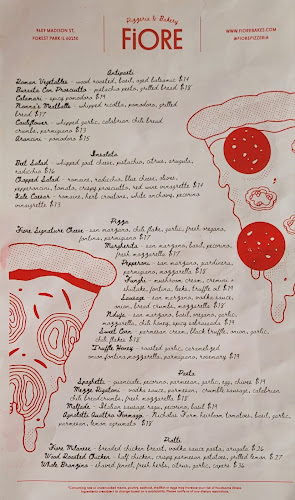 Pizzeria & Bakery
FiORE
MADISON ST,
FOREST PARK IL
WWW.FIOREBAKES.COM
@FIOREPIZZERIA
Antipasti
Roman Vegetables - wood roasted, basil, aged balsamic $14
Burrata Con Prosciutto - pistachio pesto, grilled bread $18
Calamari - spicy pomodoro $19
Nonna's Meatballs - whipped ricotta, pomodoro, grilled
bread $17
Cauliflower - whipped garlic, calabrian chili bread
crumbs, parmigiano $13
Arancini - pomodoro $15
Insalata
Beet Salad - whipped goat cheese, pistachio, citrus, arugula,
radicchio $16
Chopped Salad - romaine, radicchio, blue cheese, olives,
pepperoncini, tomato, crispy prosciutto, red wine vinaigrette $14
Kale Caesar - romaine, herb croutons, white anchovy, pecorino
vinaigrette $13
Pizza
Fiore Signature Cheese - san marzano, chili flake, garlic, fresh oregano,
fontina, parmigiano $17
Margherita - san marzano, basil, pecorino,
fresh mozzarella $17
Pepperoni - san marzano, giardiniera,
parmigiano, mozzarella $18
Funghi - mushroom cream, cremini +
shiitake, fontina, leeks, truffle oil $19
Sausage - san marzano, vodka sauce,
onion, bread crumbs, mozzarella $18
Nduja - san marzano, basil, oregano, garlic,
mozzarella, chili honey, spicy soppressata $19
Sweet Corn - parmesan cream, black truffle, onion, garlic,
chili flakes $18
Truffle Honey - roasted garlic, caramelized
onion, fontina, mozzarella, parmigiano, rosemary $19
Pasta
Spaghetti - guanciale, pecorino, parmesan, garlic, egg, chives $19
Mezze Rigatoni - vodka sauce, parmesan, crumble sausage, calabrian
chili breadcrumbs, fresh mozzarella $18
Mafalde - Italian sausage ragu, pecorino, basil $19
Agnolotti Quattro Formaggi - Nicholas Farm heirloom tomatoes, basil, garlic,
parmesan, lemon $18
Piatti
Fiore Milanese - breaded chicken breast, vodka sauce pasta, arugula $26
Wood Roasted Chicken - half chicken, crispy parmesan potatoes, grilled lemon $27
Whole Branzino - shaved fennel, fresh herbs, citrus, garlic, capers $36